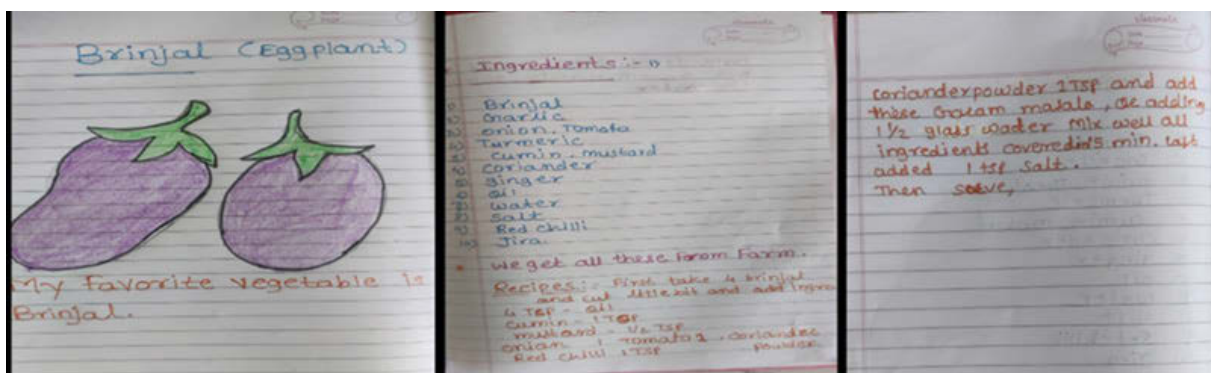 Brinjal (Eggplant)
My favorite vegetable is
Brinjal.
Ingredients :-
Brinjal
Garlic
onion, Tomato
Turmeric
cumin, mustard
coriander
ginger
oil
water
salt
Red chilli
Jira
we get all these from Farm.
Recipes :- First take 4 brinjal
and cut and add
4 TSP - oil
cumin - 1 TSP
mustard - 1/2 TSP
onion 1 Tomato 2, coriander
Red chilli 1 TSP powder
coriander powder 1 TSP and add
these masala, adding
1 1/2 glass Mix well all
ingredients 5 min. last
added 1 tsp salt.
Then